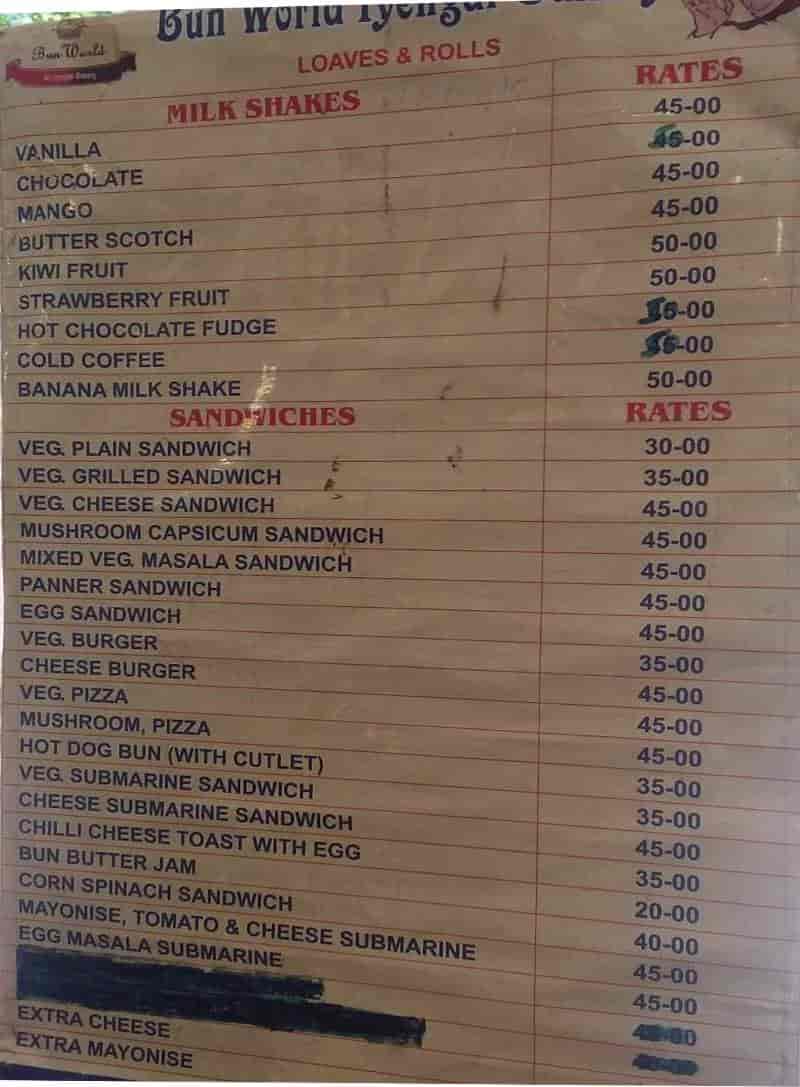 Bun World
Bun World Iyengar
LOAVES & ROLLS
MILK SHAKES RATES
VANILLA 45-00
CHOCOLATE
MANGO 45-00
BUTTER SCOTCH 45-00
KIWI FRUIT 50-00
STRAWBERRY FRUIT 50-00
HOT CHOCOLATE FUDGE
COLD COFFEE
BANANA MILK SHAKE 50-00
SANDWICHES RATES
VEG. PLAIN SANDWICH 30-00
VEG. GRILLED SANDWICH 35-00
VEG. CHEESE SANDWICH 45-00
MUSHROOM CAPSICUM SANDWICH 45-00
MIXED VEG. MASALA SANDWICH 45-00
PANNER SANDWICH 45-00
EGG SANDWICH 45-00
VEG. BURGER 35-00
CHEESE BURGER 45-00
VEG. PIZZA 45-00
MUSHROOM, PIZZA 45-00
HOT DOG BUN (WITH CUTLET) 35-00
VEG. SUBMARINE SANDWICH 35-00
CHEESE SUBMARINE SANDWICH 45-00
CHILLI CHEESE TOAST WITH EGG 35-00
BUN BUTTER JAM 20-00
CORN SPINACH SANDWICH 40-00
MAYONISE, TOMATO & CHEESE SUBMARINE 45-00
EGG MASALA SUBMARINE 45-00
EXTRA CHEESE
EXTRA MAYONISE